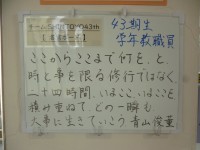 43期生
学年教職員
ここからここまで何を、と
時と事を限る修行ではなく
二十四時間、いまここ、いまここを
積み重ねて、どの一瞬も
大事に生きていこう 青山俊董